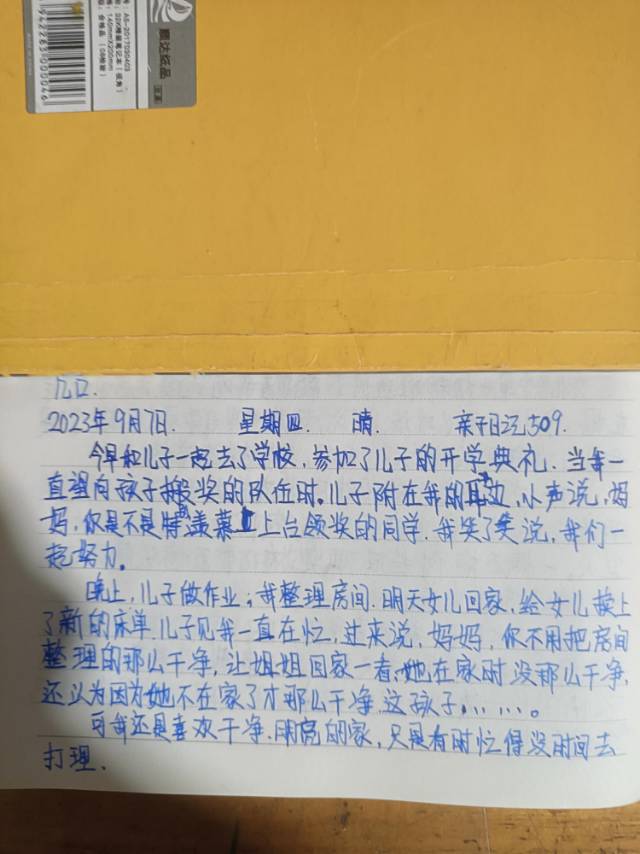 腾达纸品
号:A5-2017030403
32K精装笔记本(极角)
格:140mmX200mm
合格品 (08检验)
942263000046
几口.
2023年9月7日. 星期四. 晴. 亲子日记509.
今早和儿子一起去了学校,参加了儿子的开学典礼.当我一
直望向孩子搬奖的队伍时.儿子附在我的耳边,小声说,妈
妈,你是不是特羡慕上台领奖的同学.我笑了笑说,我们一
起努力。
晚上,儿子做作业;我整理房间.明天女儿回家,给女儿换上
了新的床单.儿子见我一直在忙,过来说,妈妈,你不用把房间
整理的那么干净,让姐姐回家一看,她在家时没那么干净,
还以为因为她不在家了才那么干净.这孩子……。
可我还是喜欢干净.明亮的家,只是有时忙得没时间去
打理.